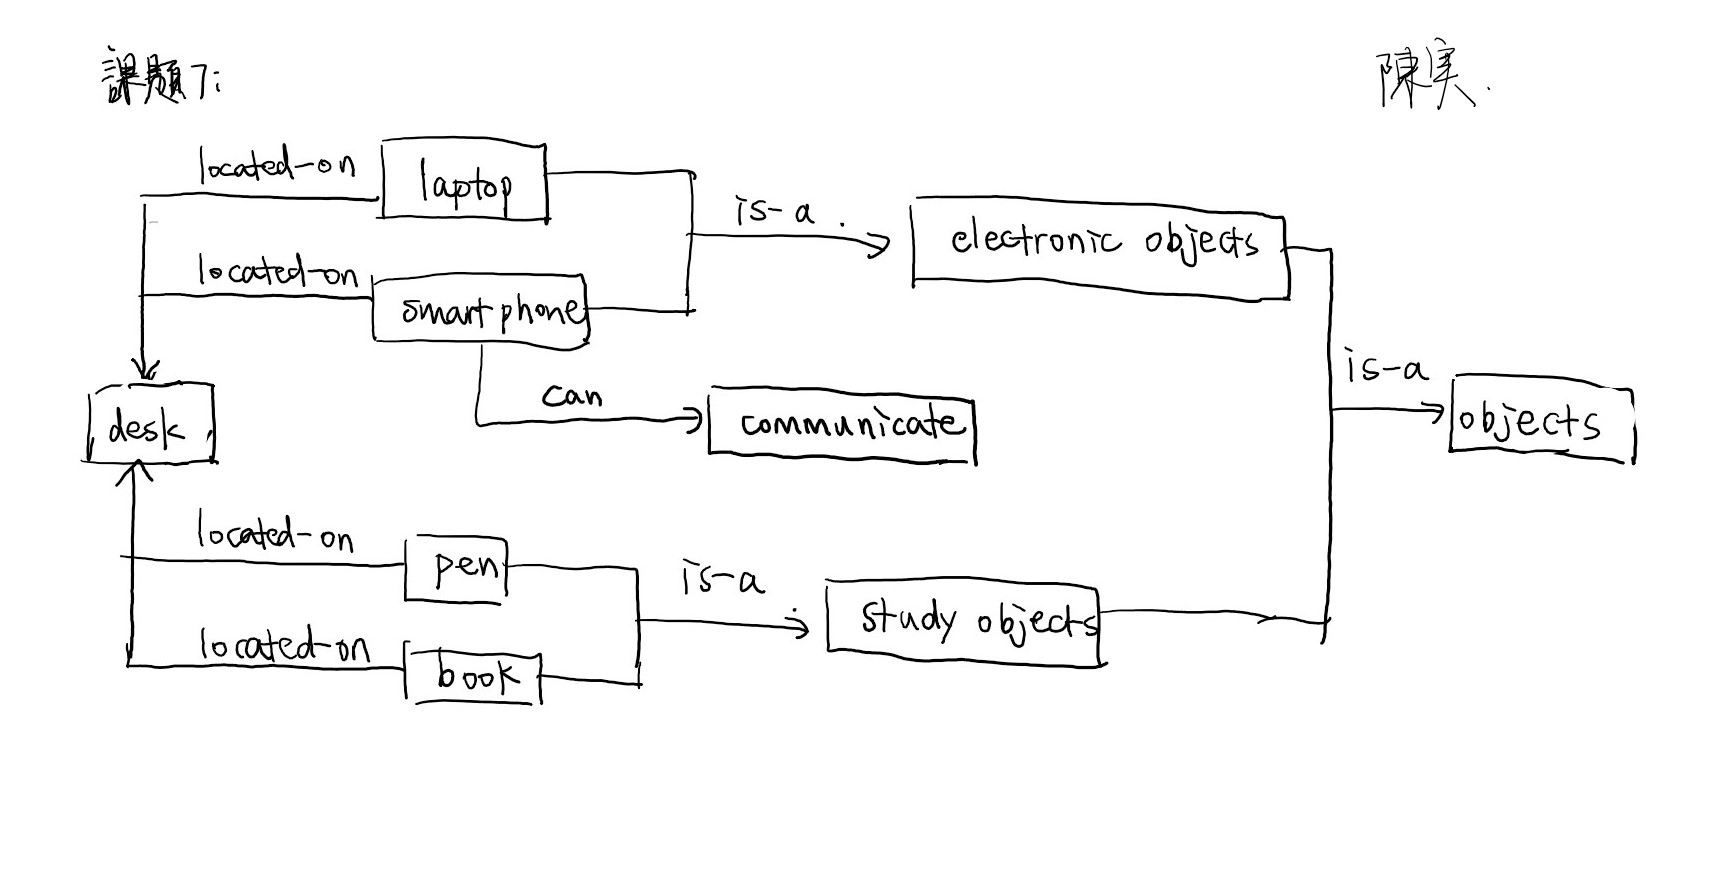 課題7:
陳実.
located-on
laptop
is-a.
electronic objects
located-on
smartphone
is-a
objects
can
communicate
desk
located-on
pen
is-a
study objects
located-on
book